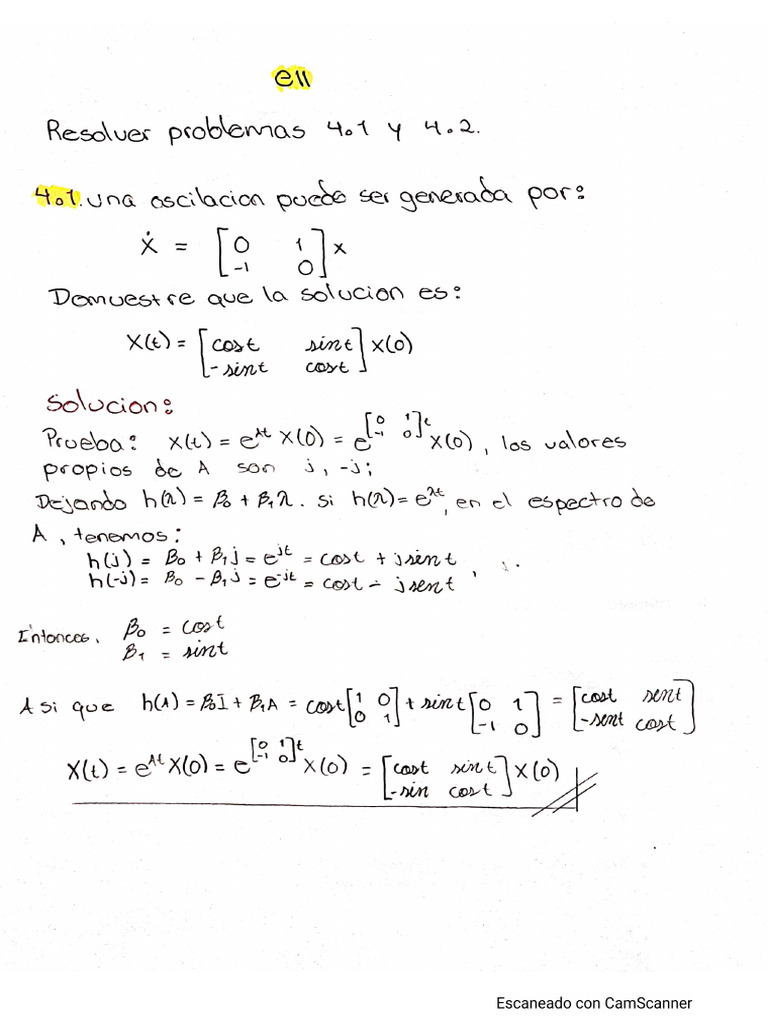 e11
Resolver problemas 4.1 y 4.2.
4.1. una oscilacion puede ser generada por:
Ẋ = [0 1
-1 0] x
Demuestre que la solucion es:
X(t) = [cost sint
-sint cost] X(0)
Solucion:
Prueba: X(t) = e^{At} X(0) = e^{[0 1; -1 0]t} X(0), los valores
propios de A son j, -j;
Dejando h(λ) = β₀ + β₁λ. si h(λ) = e^{λt}, en el espectro de
A, tenemos:
h(j) = β₀ + β₁j = e^{jt} = cost + jsent
h(-j) = β₀ - β₁j = e^{-jt} = cost - jsent ,
Entonces, β₀ = cost
β₁ = sint
Asi que h(A) = β₀I + β₁A = cost [1 0; 0 1] + sint [0 1; -1 0] = [cost sent; -sent cost]
X(t) = e^{At} X(0) = e^{[0 1; -1 0]t} X(0) = [cost sint; -sin cost] X(0)
Escaneado con CamScanner